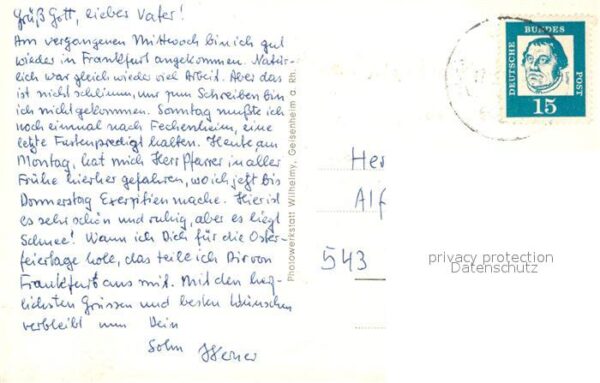 Grüß Gott, lieber Vater!
Am vergangenen Mittwoch bin ich gut
wieder in Frankfurt angekommen. Natür-
lich war gleich wieder viel Arbeit. Aber das
ist nicht schlimm, nur zum Schreiben bin
ich nicht gekommen. Sonntag mußte ich
noch einmal nach Fechenheim, eine
letzte Fastenpredigt halten. Heute, am
Montag, hat mich Herr Pfarrer in aller
Frühe hierher gefahren, wo ich jetzt bis
Donnerstag Exerzitien mache. Hier ist
es sehr schön und ruhig, aber es liegt
Schnee! Wann ich Dich für die Oster-
feiertage hole, das teile ich Dir von
Frankfurt aus mit. Mit den herz-
lichsten Grüssen und besten Wünschen
verbleibt nun Dein
Sohn Werner
Photowerkstatt Wilhelmy, Geisenheim a. Rh.
DEUTSCHE
BUNDES
POST
15
Her
Alf
543
privacy protection
Datenschutz